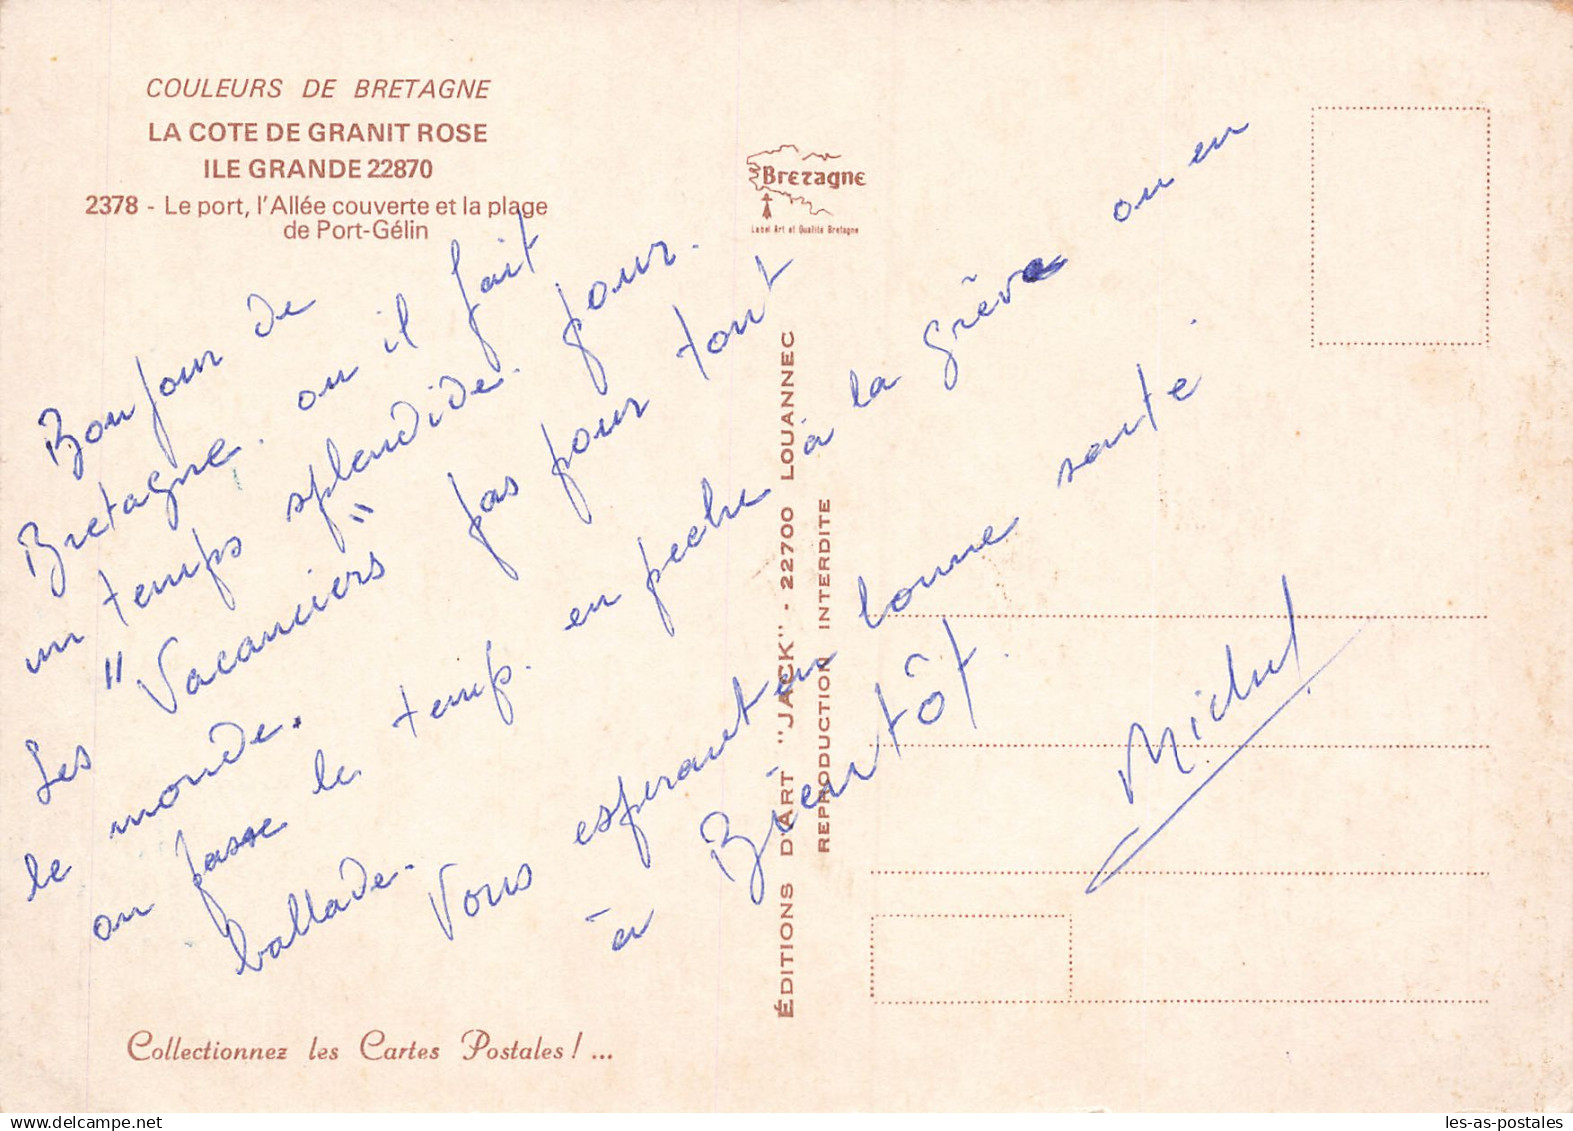 COULEURS DE BRETAGNE
LA COTE DE GRANIT ROSE
ILE GRANDE 22870
2378 - Le port, l'Allée couverte et la plage
de Port-Gélin
Bretagne
Label Art et Qualité Bretagne
Bonjour de
Bretagne. ou il fait
un temps splendide. pour.
Les "Vacanciers" pas pour tout
le monde.
on passe le temps. en peche à la grève ou en
ballade. Vous esperant en bonne santé.
à Bientôt.
Michel
ÉDITIONS D'ART "JACK" - 22700 LOUANNEC
REPRODUCTION INTERDITE
Collectionnez les Cartes Postales ! ...
les-as-postales